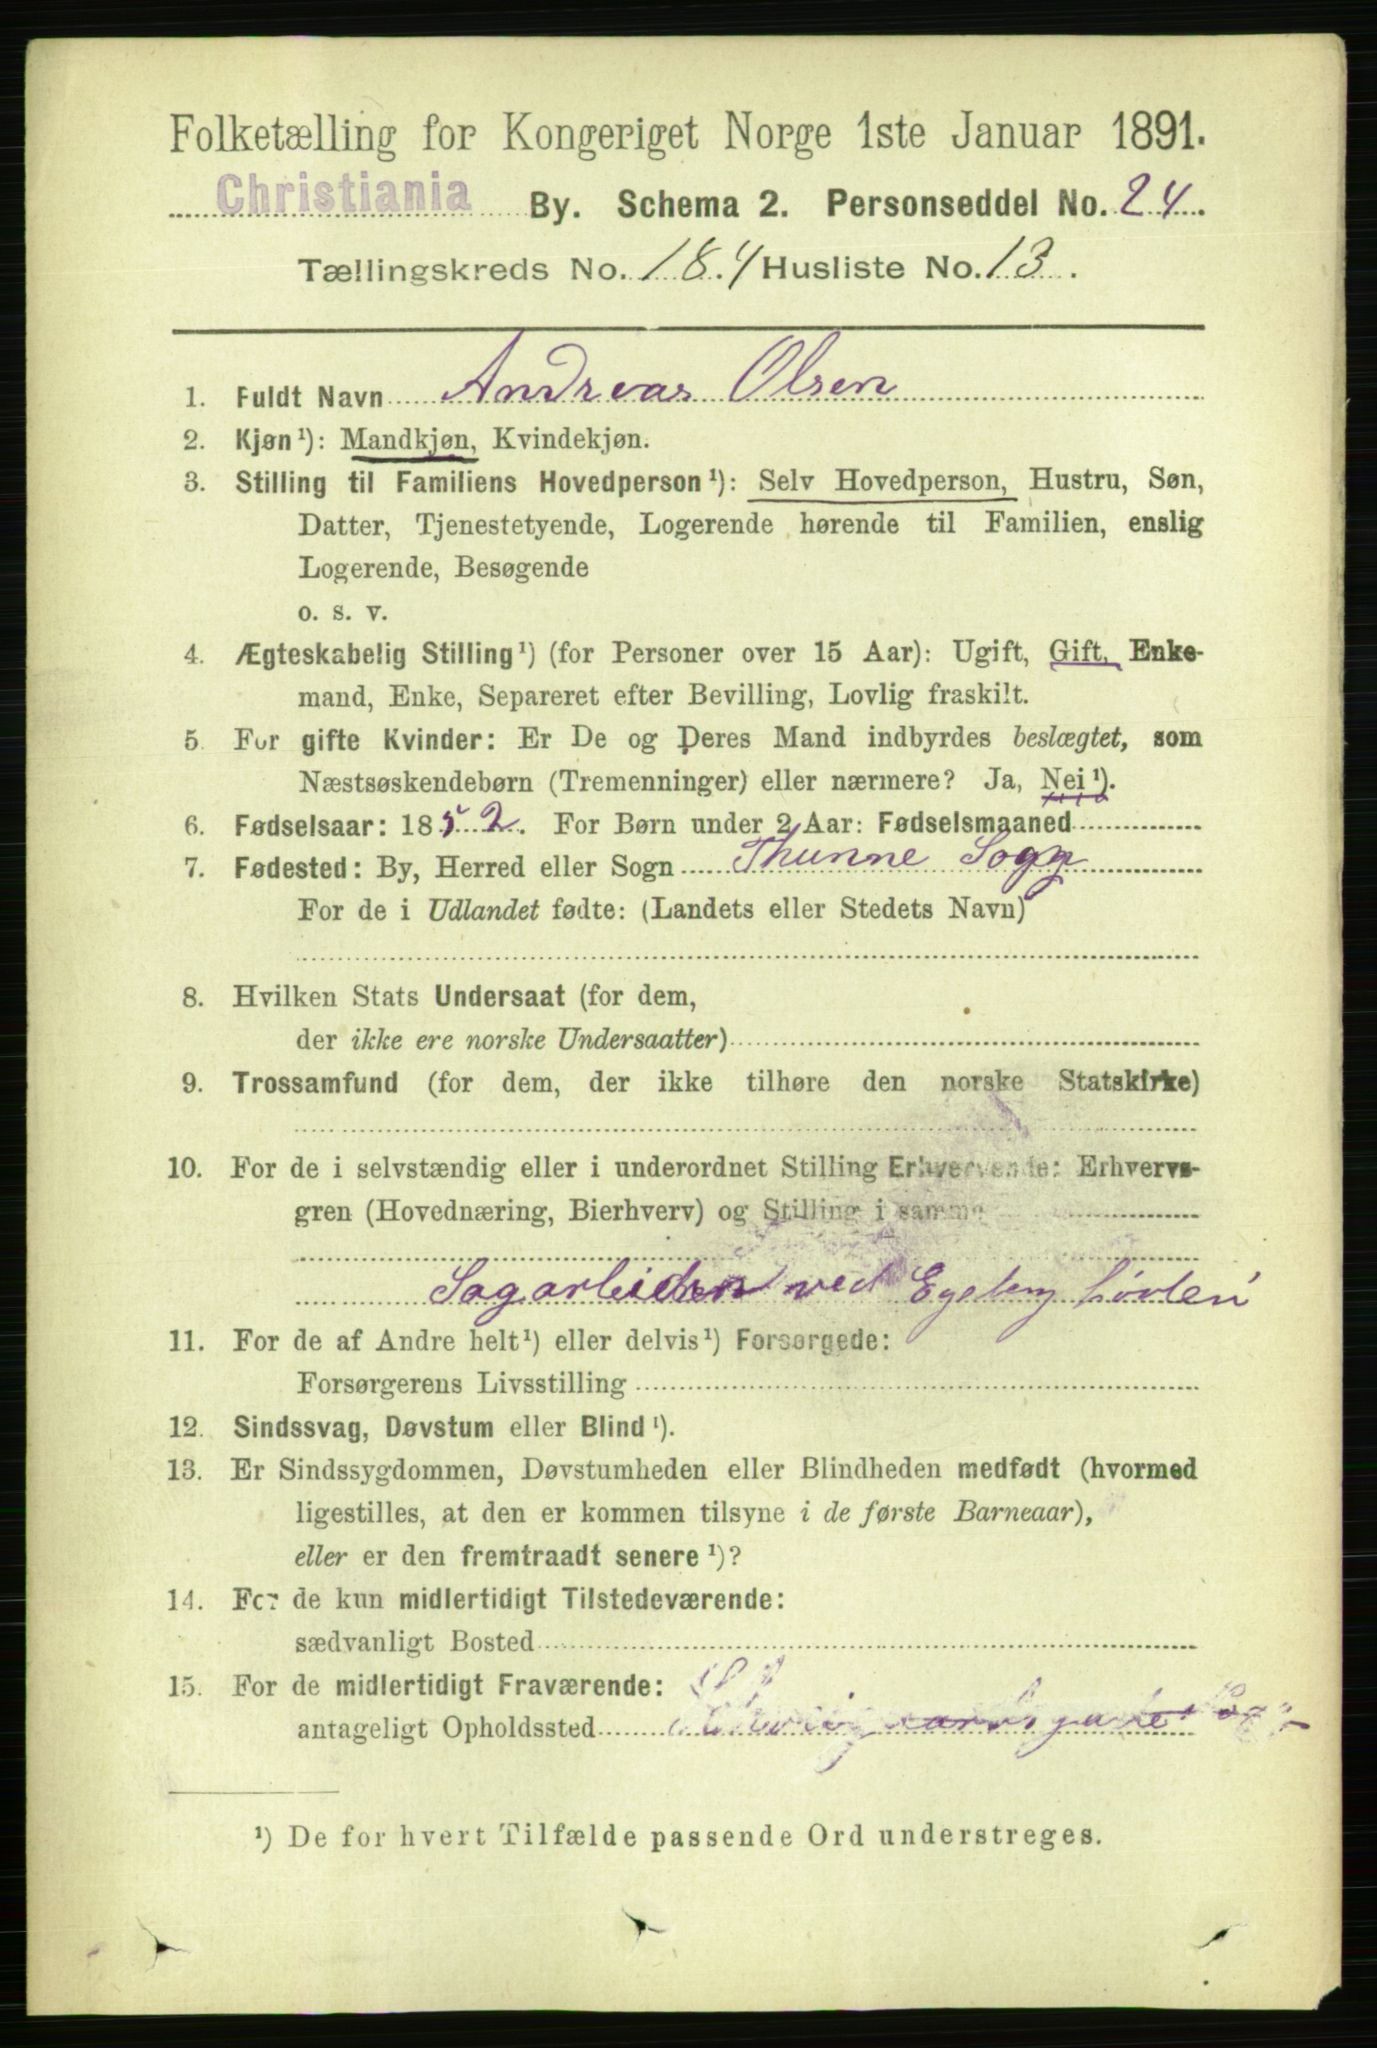 Folketælling for Kongeriget Norge 1ste Januar 1891.
Christiania By. Schema 2. Personseddel No. 24.
Tællingskreds No. 184 Husliste No. 13.
1. Fuldt Navn Andreas Olsen
2. Kjøn¹): Mandkjøn, Kvindekjøn.
3. Stilling til Familiens Hovedperson¹): Selv Hovedperson, Hustru, Søn,
Datter, Tjenestetyende, Logerende hørende til Familien, enslig
Logerende, Besøgende
o. s. v.
4. Ægteskabelig Stilling¹) (for Personer over 15 Aar): Ugift, Gift, Enke-
mand, Enke, Separeret efter Bevilling, Lovlig fraskilt.
5. For gifte Kvinder: Er De og Deres Mand indbyrdes beslægtet, som
Næstsøskendebørn (Tremenninger) eller nærmere? Ja, Nei¹).
6. Fødselsaar: 1852. For Børn under 2 Aar: Fødselsmaaned
7. Fødested: By, Herred eller Sogn Thunne Sogg
For de i Udlandet fødte: (Landets eller Stedets Navn)
8. Hvilken Stats Undersaat (for dem,
der ikke ere norske Undersaatter)
9. Trossamfund (for dem, der ikke tilhøre den norske Statskirke)
10. For de i selvstændig eller i underordnet Stilling Erhvervende: Erhvervs-
gren (Hovednæring, Bierhverv) og Stilling i samme
Sagarbeider ved Egeberg
11. For de af Andre helt¹) eller delvis¹) Forsørgede:
Forsørgerens Livsstilling
12. Sindssvag, Døvstum eller Blind¹).
13. Er Sindssygdommen, Døvstumheden eller Blindheden medfødt (hvormed
ligestilles, at den er kommen tilsyne i de første Barneaar),
eller er den fremtraadt senere¹)?
14. For de kun midlertidigt Tilstedeværende:
sædvanligt Bosted
15. For de midlertidigt Fraværende:
antageligt Opholdssted
¹) De for hvert Tilfælde passende Ord understreges.